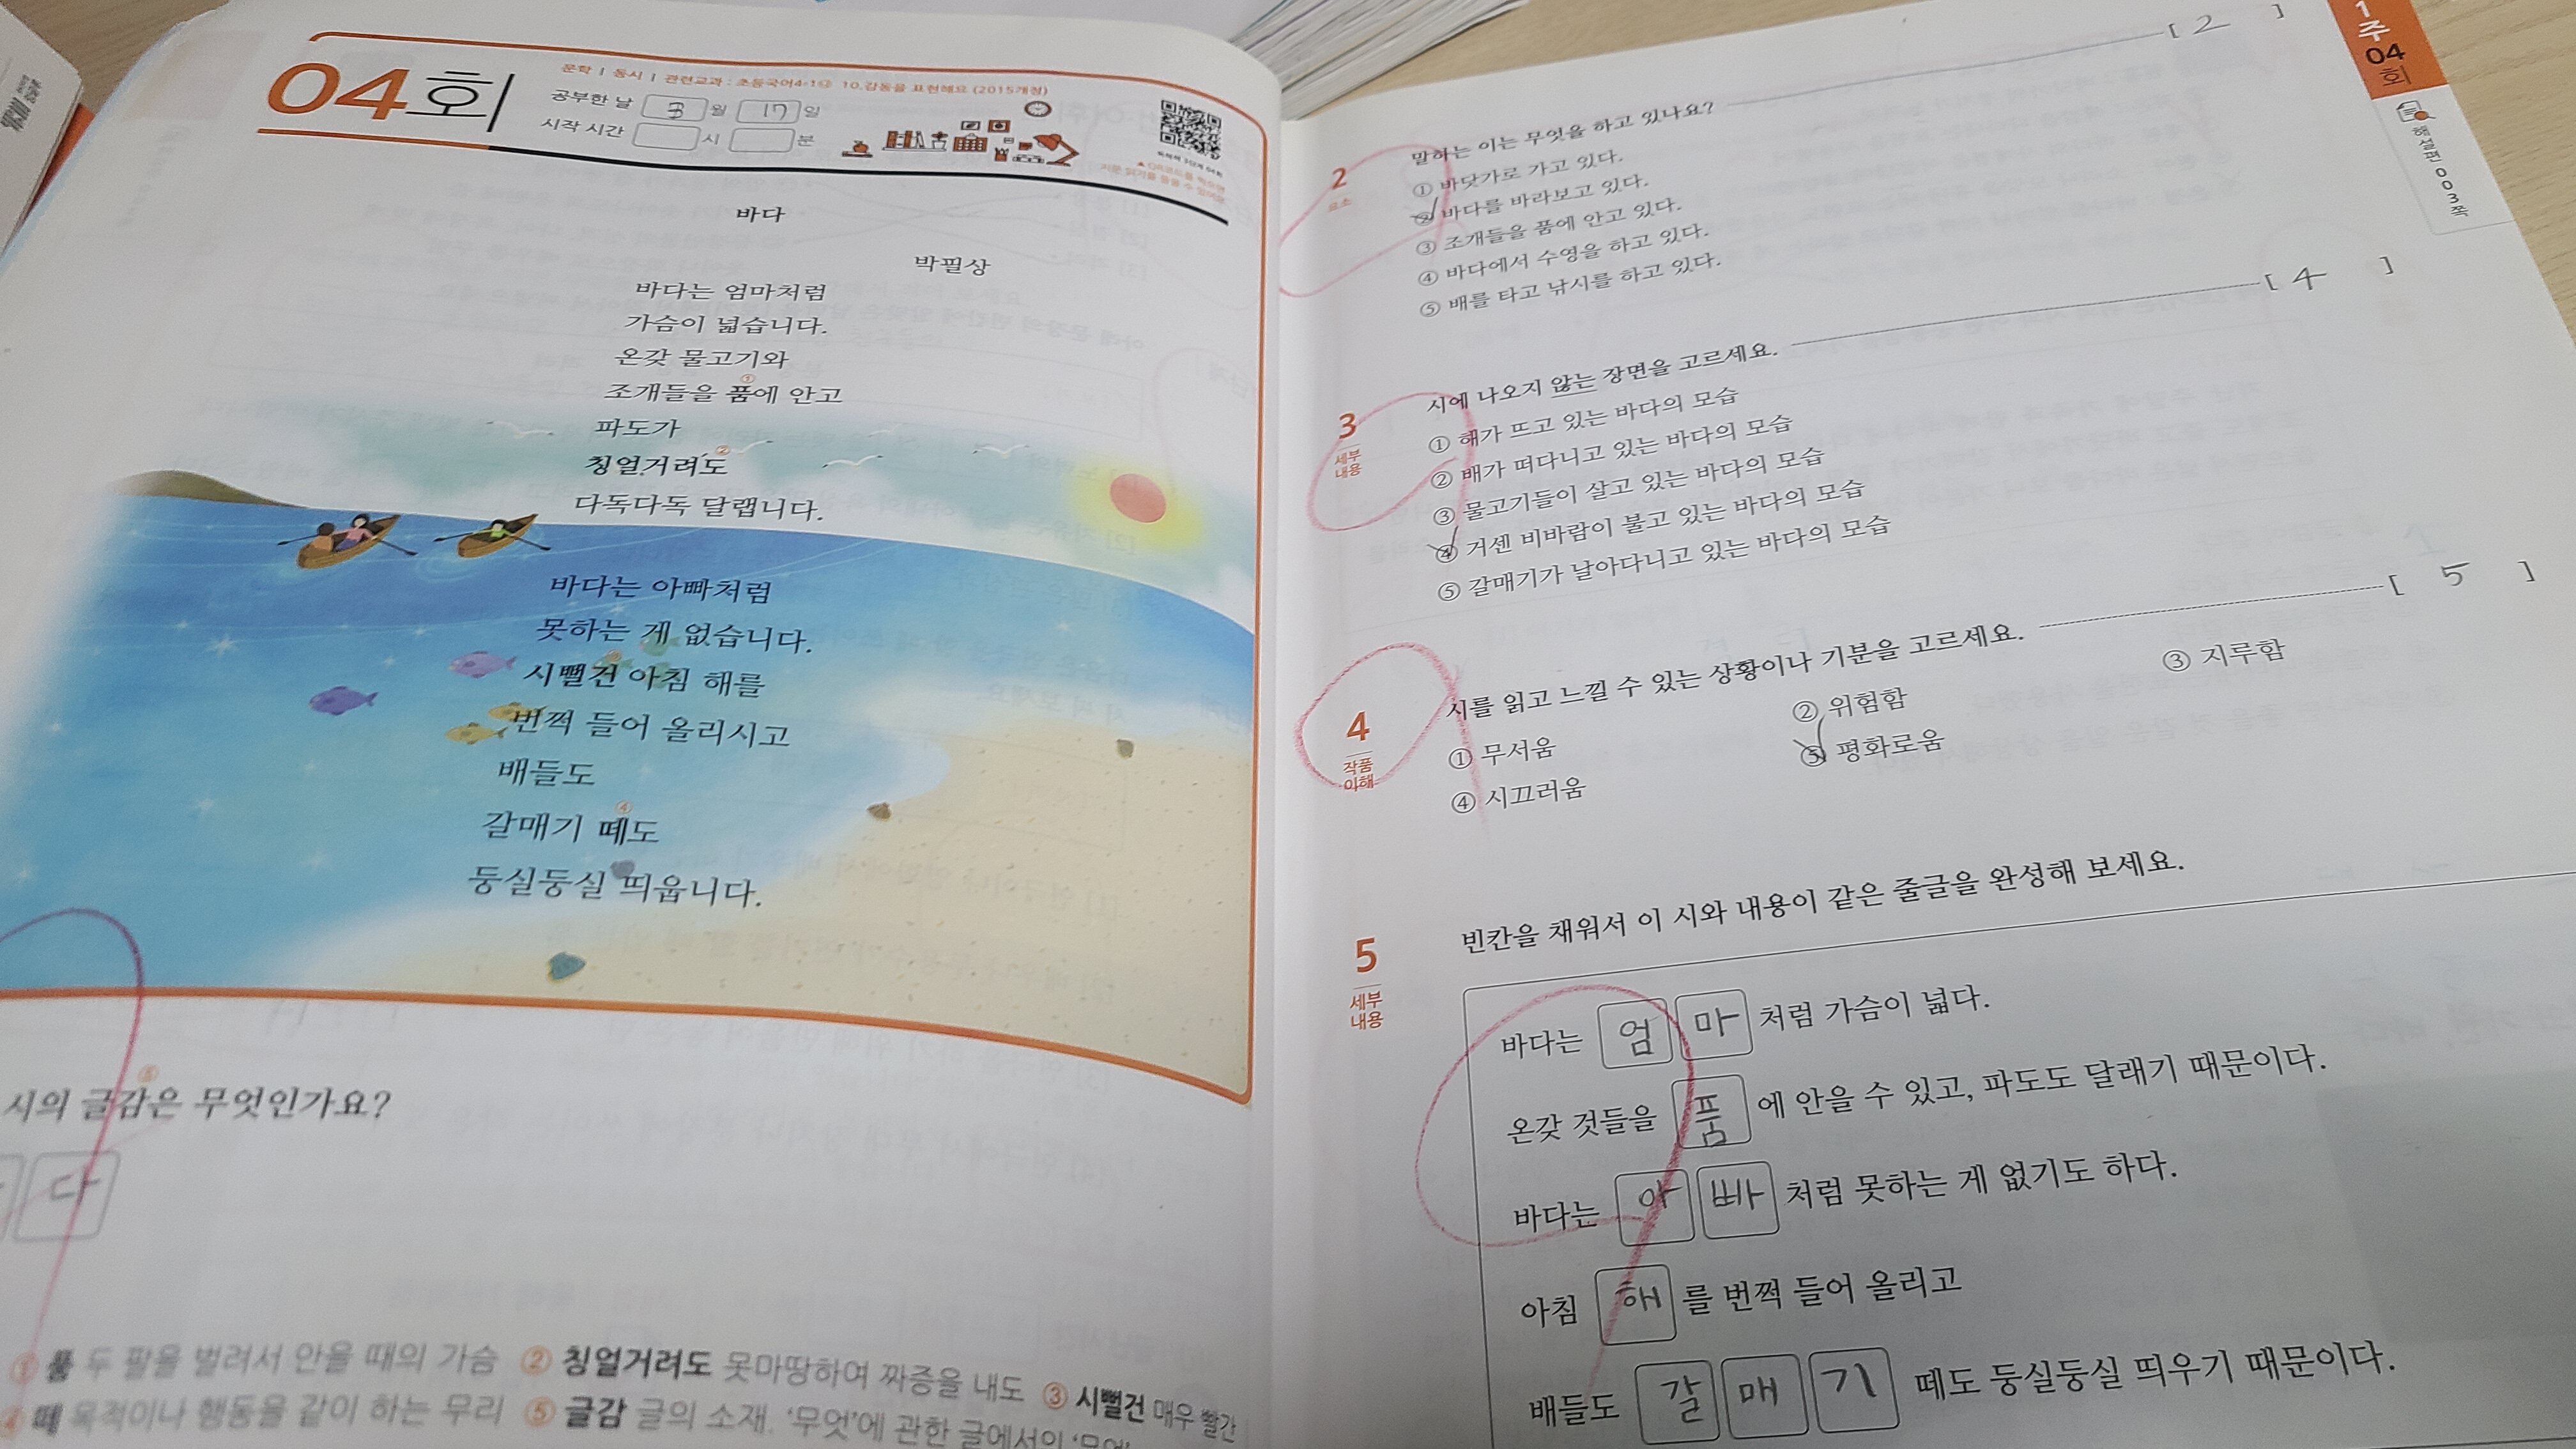 04회
문학 | 동시 | 관련교과 : 초등국어4-1㉯ 10.감동을 표현해요 (2015개정)
공부한 날 3 월 17 일
시작 시간 시 분
▲ QR코드를 찍으면
지문 읽기를 들을 수 있어요
바다
박필상
바다는 엄마처럼
가슴이 넓습니다.
온갖 물고기와
조개들을 품①에 안고
파도가
칭얼거려도②
다독다독 달랩니다.
바다는 아빠처럼
못하는 게 없습니다.
시뻘건 아침 해를
번쩍 들어 올리시고
배들도
갈매기 떼④도
둥실둥실 띄웁니다.
시의 글감⑤은 무엇인가요?
다
① 품 두 팔을 벌려서 안을 때의 가슴 ② 칭얼거려도 못마땅하여 짜증을 내도 ③ 시뻘건 매우 빨간
④ 떼 목적이나 행동을 같이 하는 무리 ⑤ 글감 글의 소재. ‘무엇’에 관한 글에서의 ‘무엇’
1주
04
회
해설편 003쪽
2
요소
말하는 이는 무엇을 하고 있나요? [ 2 ]
① 바닷가로 가고 있다.
② 바다를 바라보고 있다.
③ 조개들을 품에 안고 있다.
④ 바다에서 수영을 하고 있다.
⑤ 배를 타고 낚시를 하고 있다.
3
세부
내용
시에 나오지 않는 장면을 고르세요. [ 4 ]
① 해가 뜨고 있는 바다의 모습
② 배가 떠다니고 있는 바다의 모습
③ 물고기들이 살고 있는 바다의 모습
④ 거센 비바람이 불고 있는 바다의 모습
⑤ 갈매기가 날아다니고 있는 바다의 모습
4
작품
이해
시를 읽고 느낄 수 있는 상황이나 기분을 고르세요. [ 5 ]
① 무서움 ② 위험함 ③ 지루함
④ 시끄러움 ⑤ 평화로움
5
세부
내용
빈칸을 채워서 이 시와 내용이 같은 줄글을 완성해 보세요.
바다는 엄 마 처럼 가슴이 넓다.
온갖 것들을 품 에 안을 수 있고, 파도도 달래기 때문이다.
바다는 아 빠 처럼 못하는 게 없기도 하다.
아침 해 를 번쩍 들어 올리고
배들도 갈 매 기 떼도 둥실둥실 띄우기 때문이다.